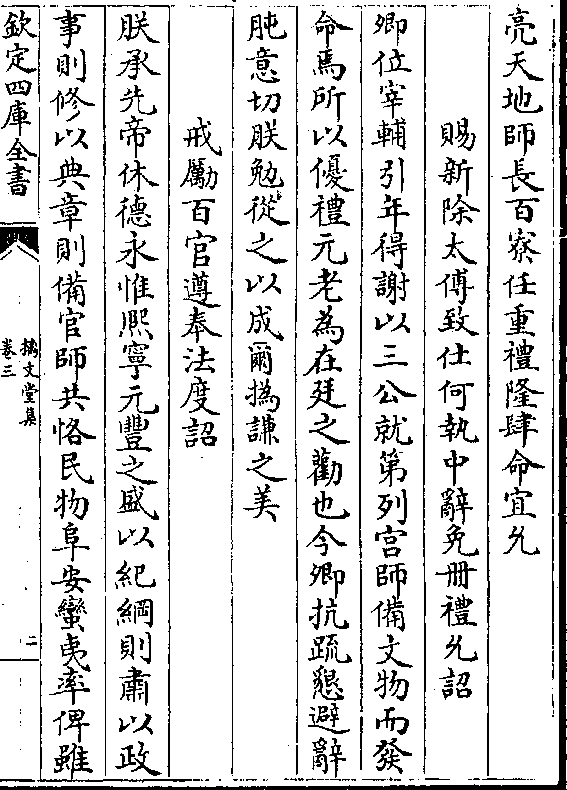 亮天地師長百寮任重禮隆肆命宜允
賜新除太傅致仕何執中辭免冊禮允詔
卿位宰輔引年得謝以三公就第列宫師備文物而發
命焉所以優禮元老為在廷之勸也今卿抗疏懇避辭
肫意切朕勉從之以成爾撝謙之美
戒勵百官遵奉法度詔
朕承先帝休德永惟熙寧元豐之盛以紀綱則肅以政
事則修以典章則備官師共恪民物阜安蠻夷率俾雖
欽定四庫全書
摛文堂集
卷三
二